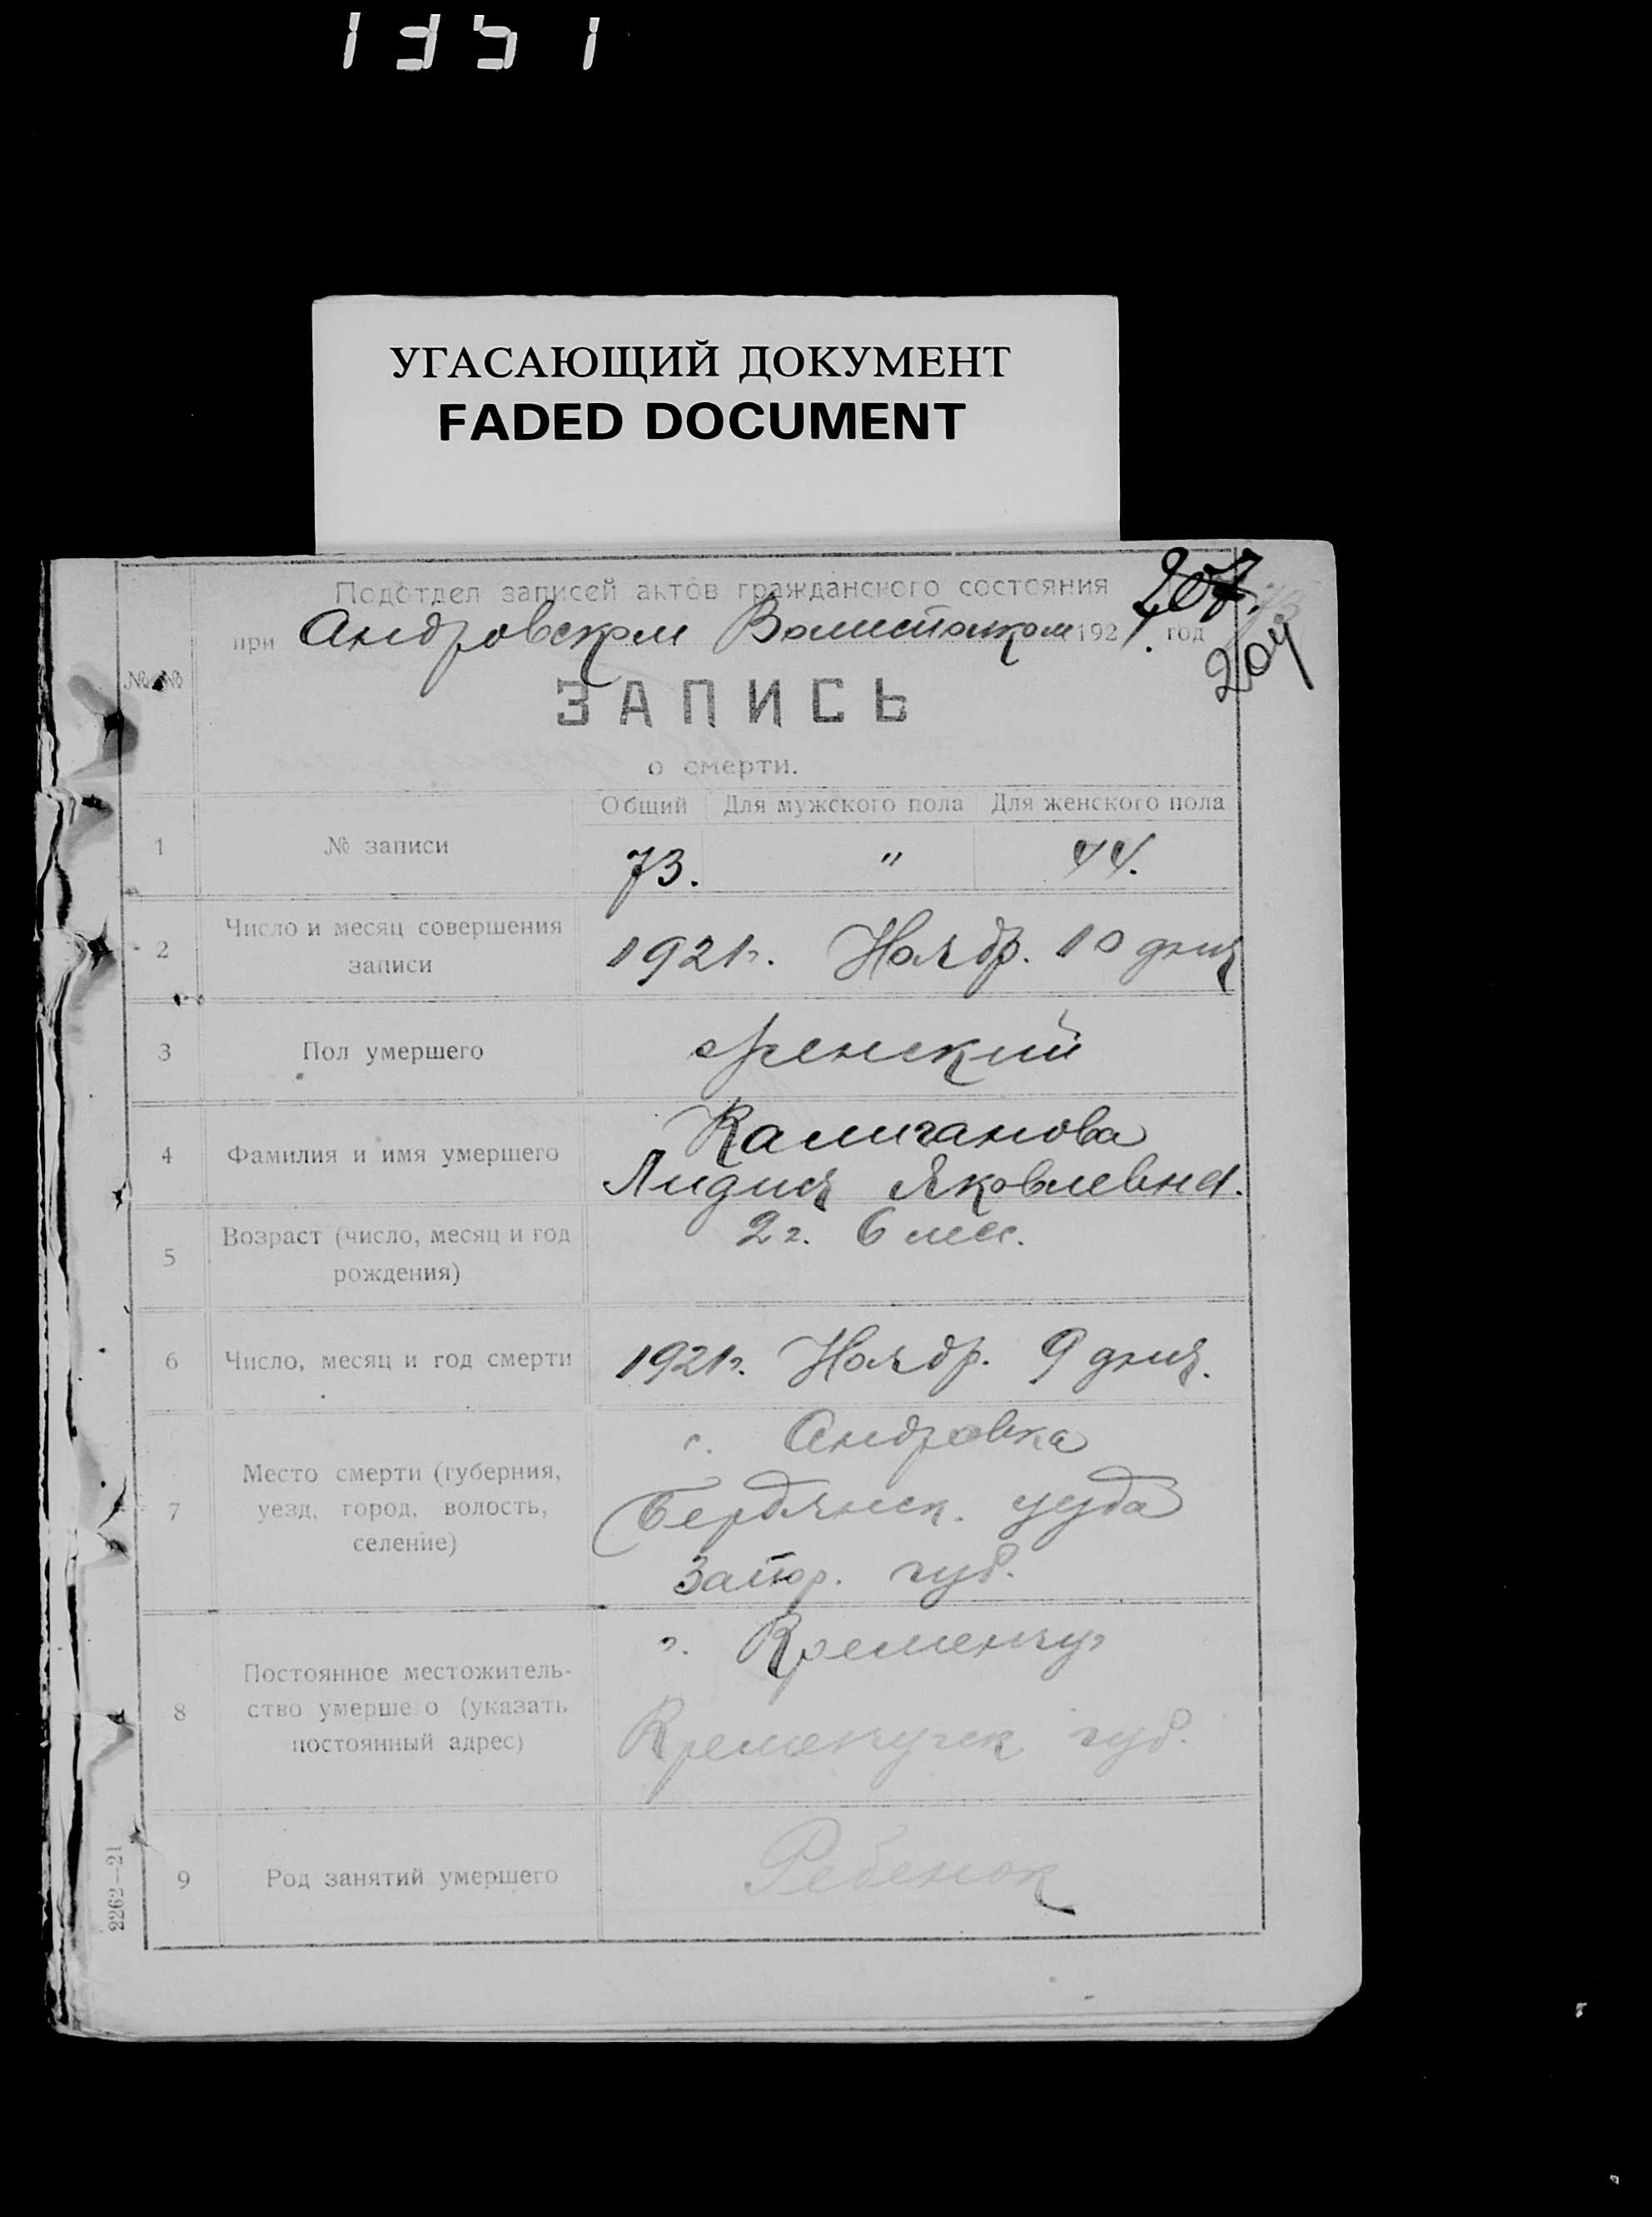 1351
УГАСАЮЩИЙ ДОКУМЕНТ
FADED DOCUMENT
207.
204
Подотдел записей актов гражданского состояния
при Андровском Волисполком 1921. год
№ №
ЗАПИСЬ
о смерти.
Общий Для мужского пола Для женского пола
1 № записи 73. " 44.
2 Число и месяц совершения
записи
1921г. Ноябр. 10 дня
3 Пол умершего женский
4 Фамилия и имя умершего
Калиганова
Лидия Яковлевна.
5 Возраст (число, месяц и год
рождения)
2г. 6 мес.
6 Число, месяц и год смерти 1921г. Ноябр. 9 дня.
7 Место смерти (губерния,
уезд, город, волость,
селение)
с. Андровка
Бердянск. уезда
Запор. губ.
8 Постоянное местожитель-
ство умершего (указать
постоянный адрес)
г. Кременчуг
Кременчугск губ.
9 Род занятий умершего Ребенок
2262—21